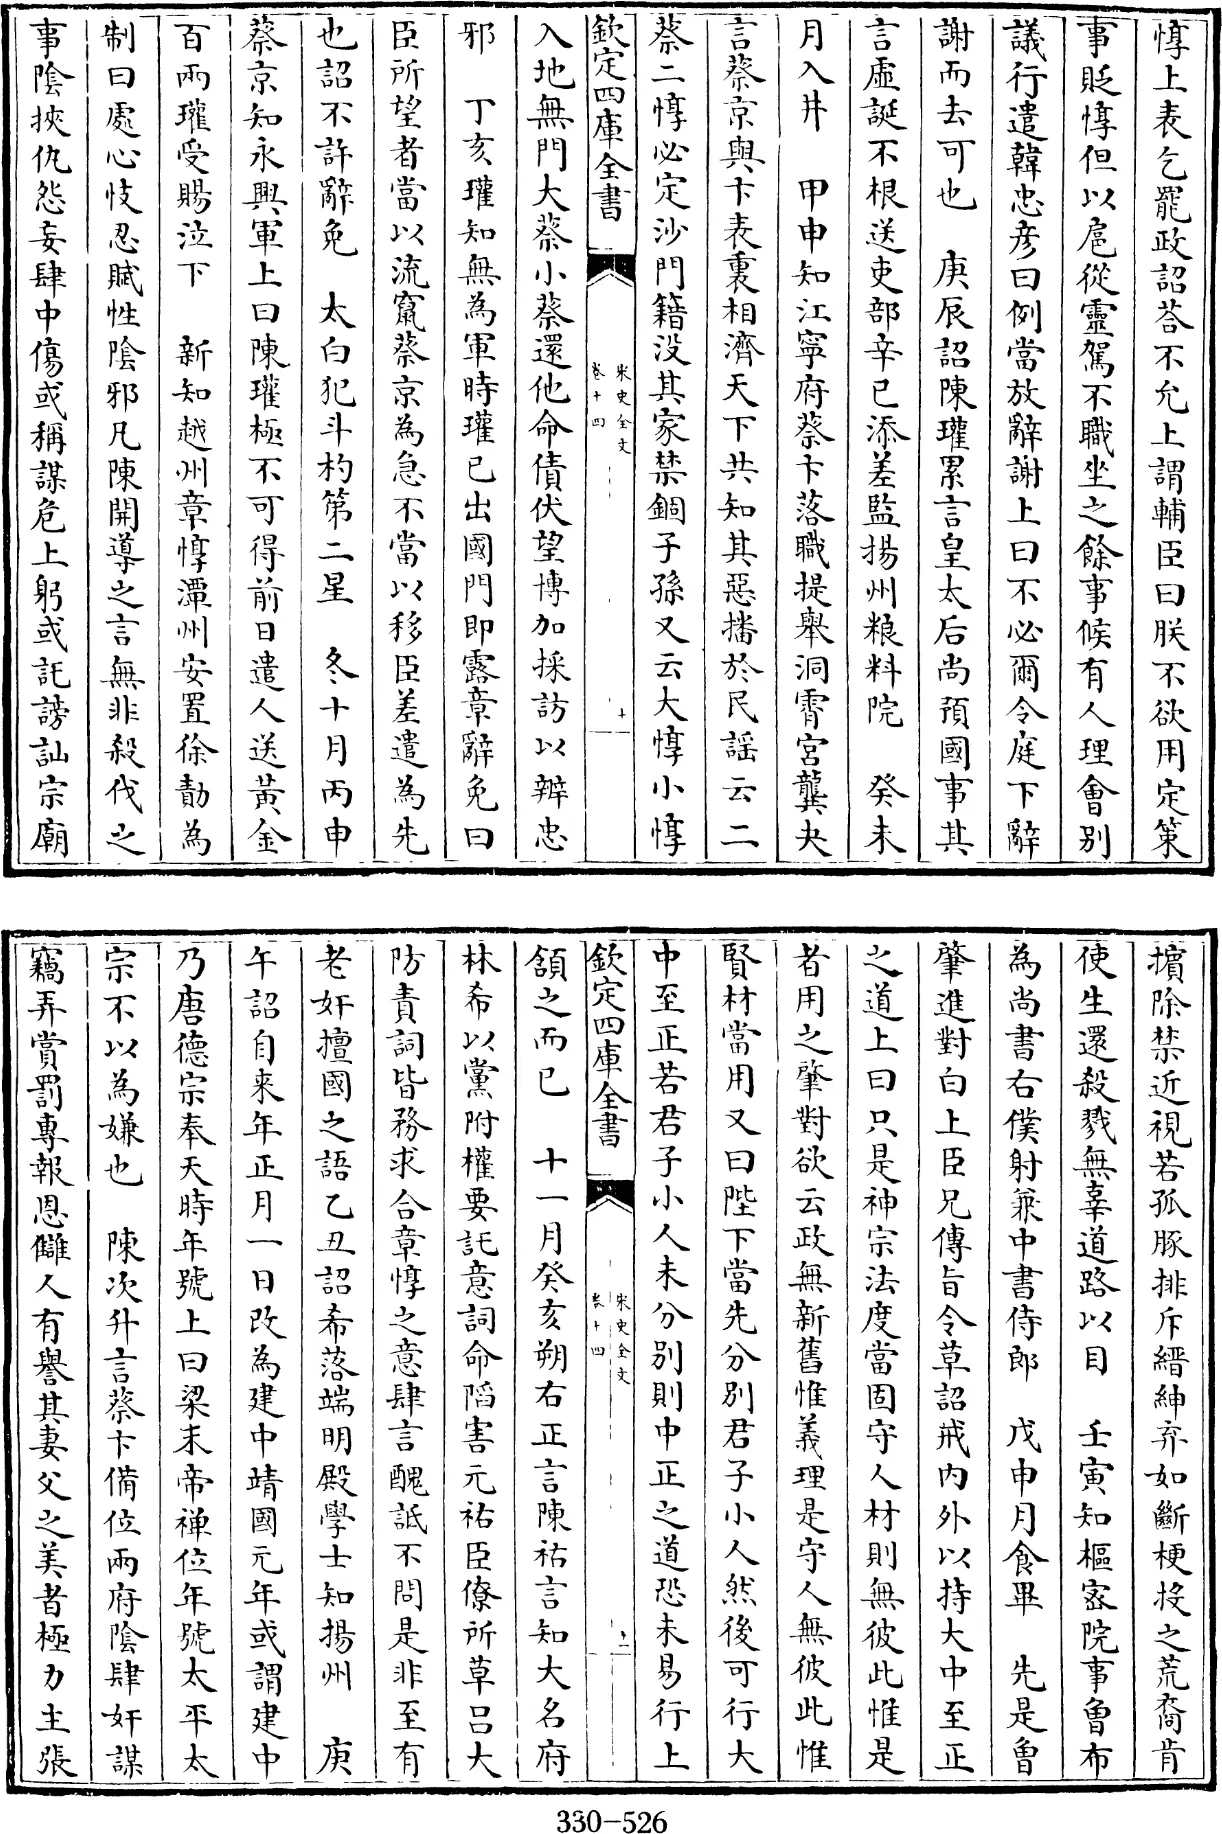 惇上表乞罷政詔荅不允上謂輔臣曰朕不欲用定策
事貶惇但以扈從靈駕不職坐之餘事候有人理會别
議行遣韓忠彦曰例當放辭謝上曰不必爾令庭下辭
謝而去可也　庚辰詔陳瓘累言皇太后尚預國事其
言虚誕不根送吏部辛巳添差監揚州粮料院　癸未
月入井　甲申知江寧府蔡卞落職提舉洞霄宫龔夬
言蔡京與卞表裏相濟天下共知其惡播於民謡云二
蔡二惇必定沙門籍没其家禁錮子孫又云大惇小惇
欽定四庫全書
宋史全文
卷十四
十
入地無門大蔡小蔡還他命債伏望博加採訪以辨忠
邪　丁亥瓘知無為軍時瓘已出國門即露章辭免曰
臣所望者當以流竄蔡京為急不當以移臣差遣為先
也詔不許辭免　太白犯斗杓第二星　冬十月丙申
蔡京知永興軍上曰陳瓘極不可得前日遣人送黄金
百兩瓘受賜泣下　新知越州章惇潭州安置徐勣為
制曰處心忮忍賦性隂邪凡陳開導之言無非殺伐之
事隂挾仇怨妄肆中傷或稱謀危上躬或託謗訕宗廟
擯除禁近視若孤豚排斥縉紳弃如斷梗投之荒裔肯
使生還殺戮無辜道路以目　壬寅知樞宻院事曾布
為尚書右僕射兼中書侍郎　戊申月食畢　先是曾
肇進對白上臣兄傳旨令草詔戒内外以持大中至正
之道上曰只是神宗法度當固守人材則無彼此惟是
者用之肇對欲云政無新舊惟義理是守人無彼此惟
賢材當用又曰陛下當先分别君子小人然後可行大
中至正若君子小人未分别則中正之道恐未易行上
欽定四庫全書
宋史全文
卷十四
十一
頷之而已　十一月癸亥朔右正言陳祐言知大名府
林希以黨附權要託意詞命謟害元祐臣僚所草吕大
防責詞皆務求合章惇之意肆言醜詆不問是非至有
老奸擅國之語乙丑詔希落端明殿學士知揚州　庚
午詔自来年正月一日改為建中靖國元年或謂建中
乃唐德宗奉天時年號上曰梁末帝禅位年號太平太
宗不以為嫌也　陳次升言蔡卞備位兩府隂肆奸謀
竊弄賞罰專報恩讎人有譽其妻父之美者極力主張
330-526